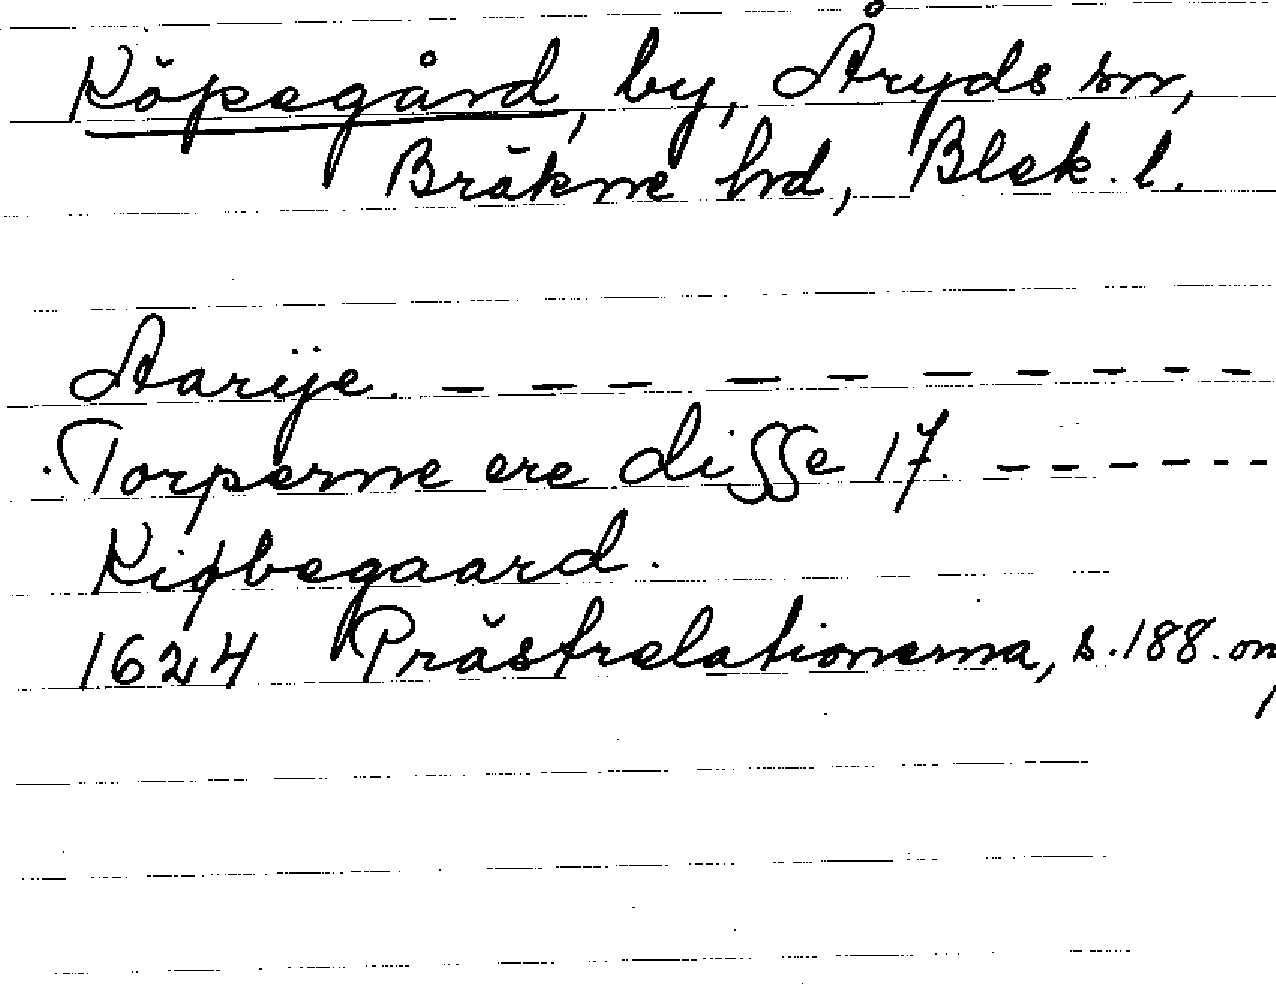 Köpegård, by, Åryds sn,
Bräkne hd, Blek. l.
Aarÿe. – – – – – – – – – – –
Torperne ere disse 17. – – – – – –
Kiøbegaard.
1624 Prästrelationerna, s. 188. on,